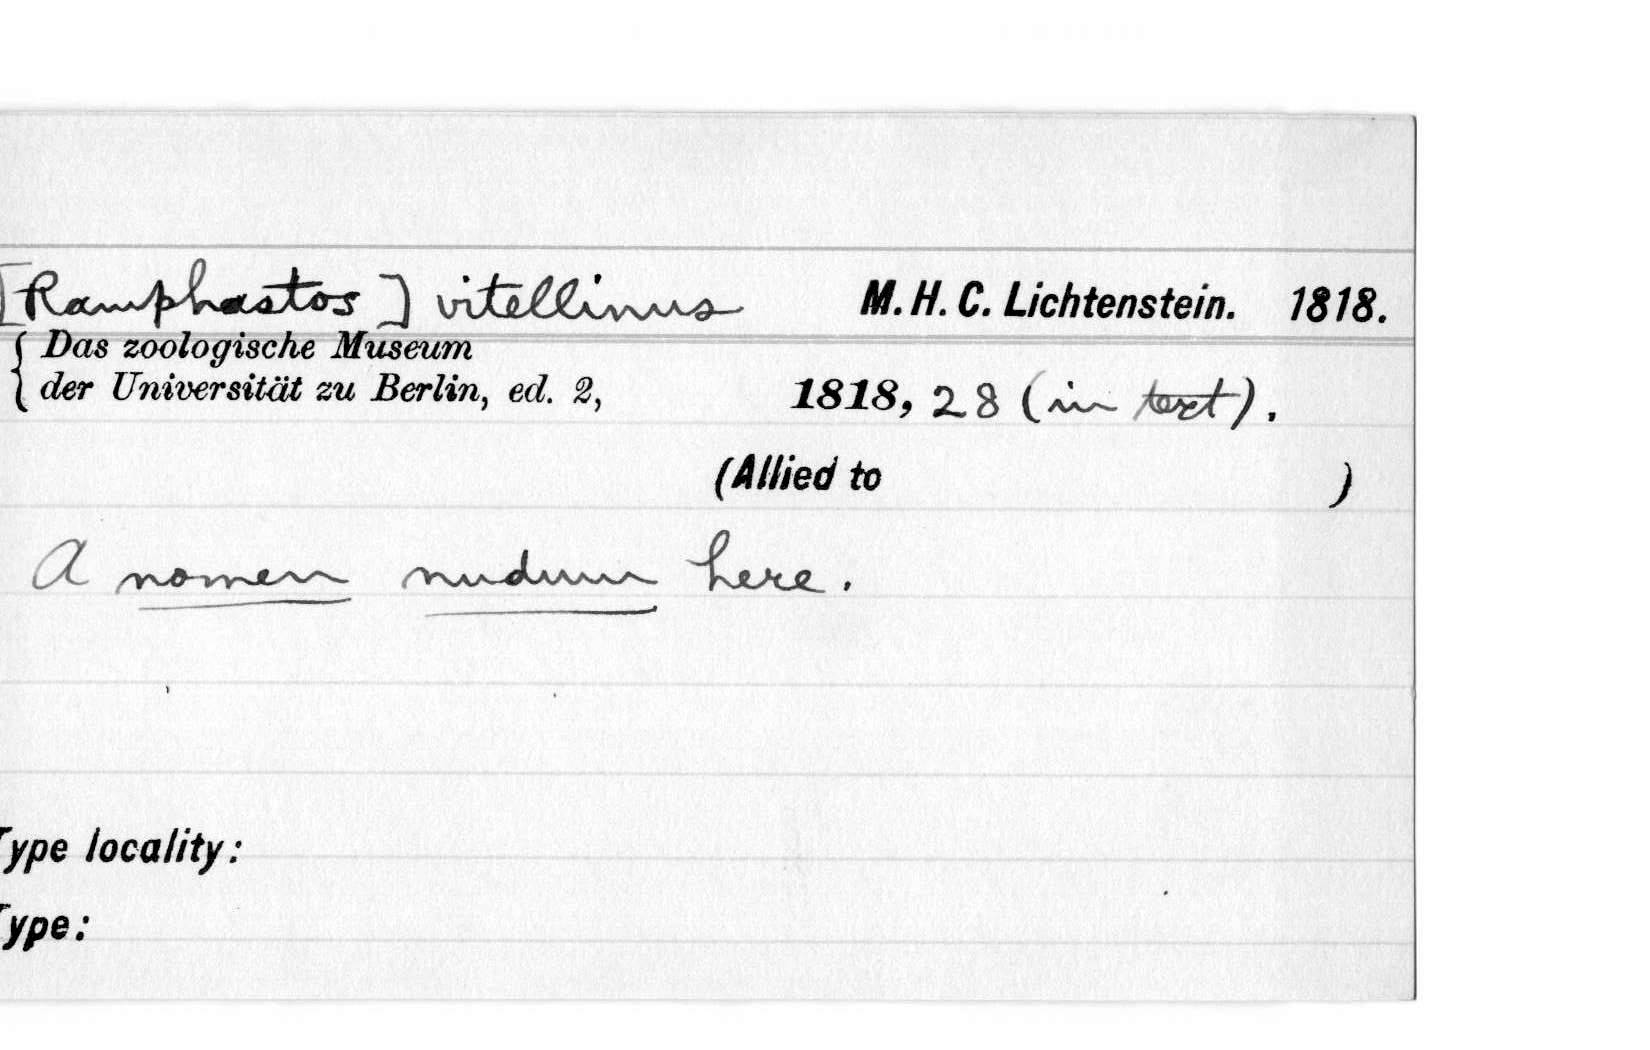 [Ramphastos] vitellinus M. H. C. Lichtenstein. 1818.
{ Das zoologische Museum
der Universität zu Berlin, ed. 2, 1818, 28 (in text).
(Allied to )
A nomen nudum here.
Type locality:
Type: